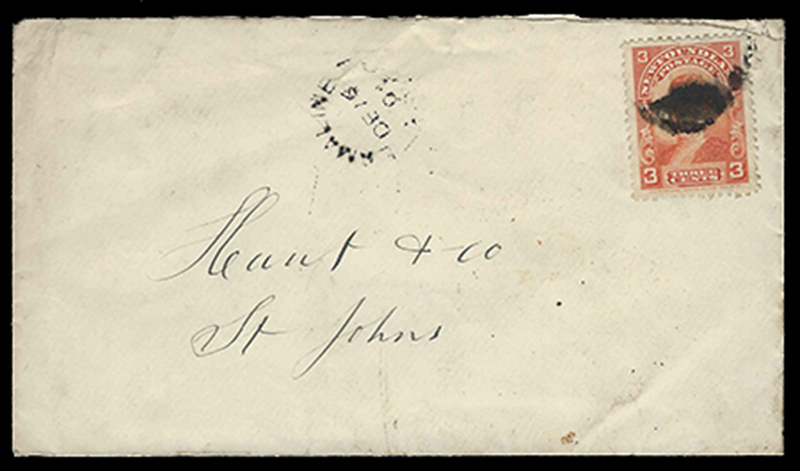 3 3
NEWFOUNDLAND
POSTAGE
3 THREE CENTS 3
DE 16
& co
St Johns